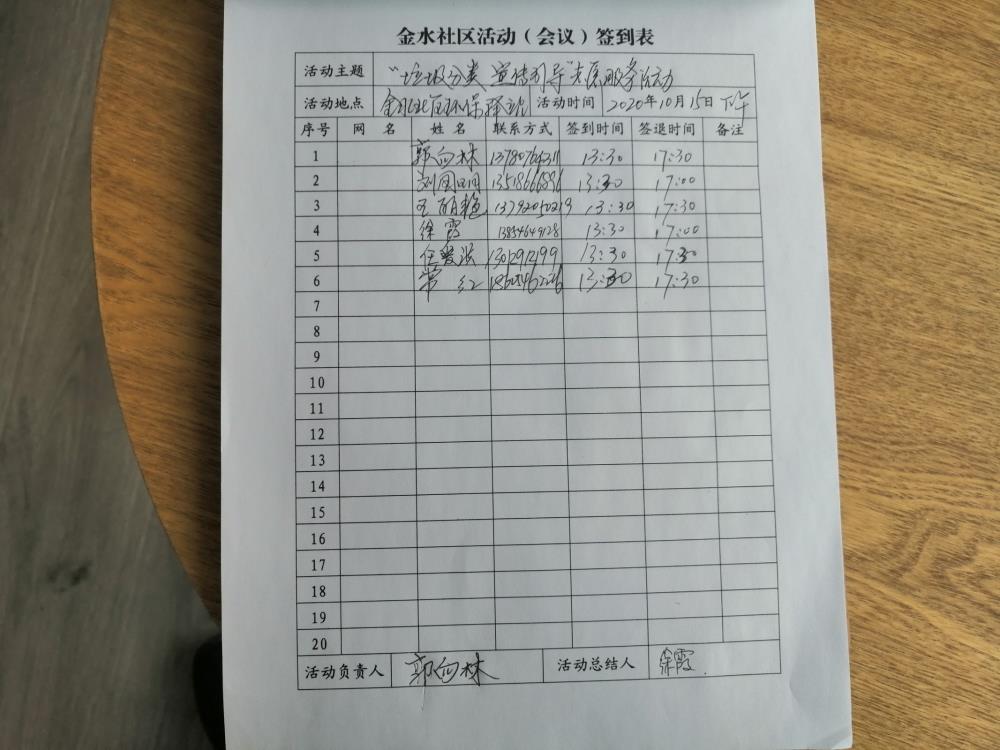 金水社区活动（会议）签到表
活动主题 “垃圾分类 宣传引导”志愿服务活动
活动地点 金水社区环保驿站 活动时间 2020年10月15日下午
序号 网名 姓名 联系方式 签到时间 签退时间 备注
1 郭向林 13:30 17:30
2 13:30 17:00
3 王丽艳 13792050219 13:30 17:30
4 徐霞 13854649128 13:30 17:00
5 任爱滨 13:30 17:30
6 常红 13:30 17:30
7
8
9
10
11
12
13
14
15
16
17
18
19
20
活动负责人 郭向林 活动总结人 徐霞